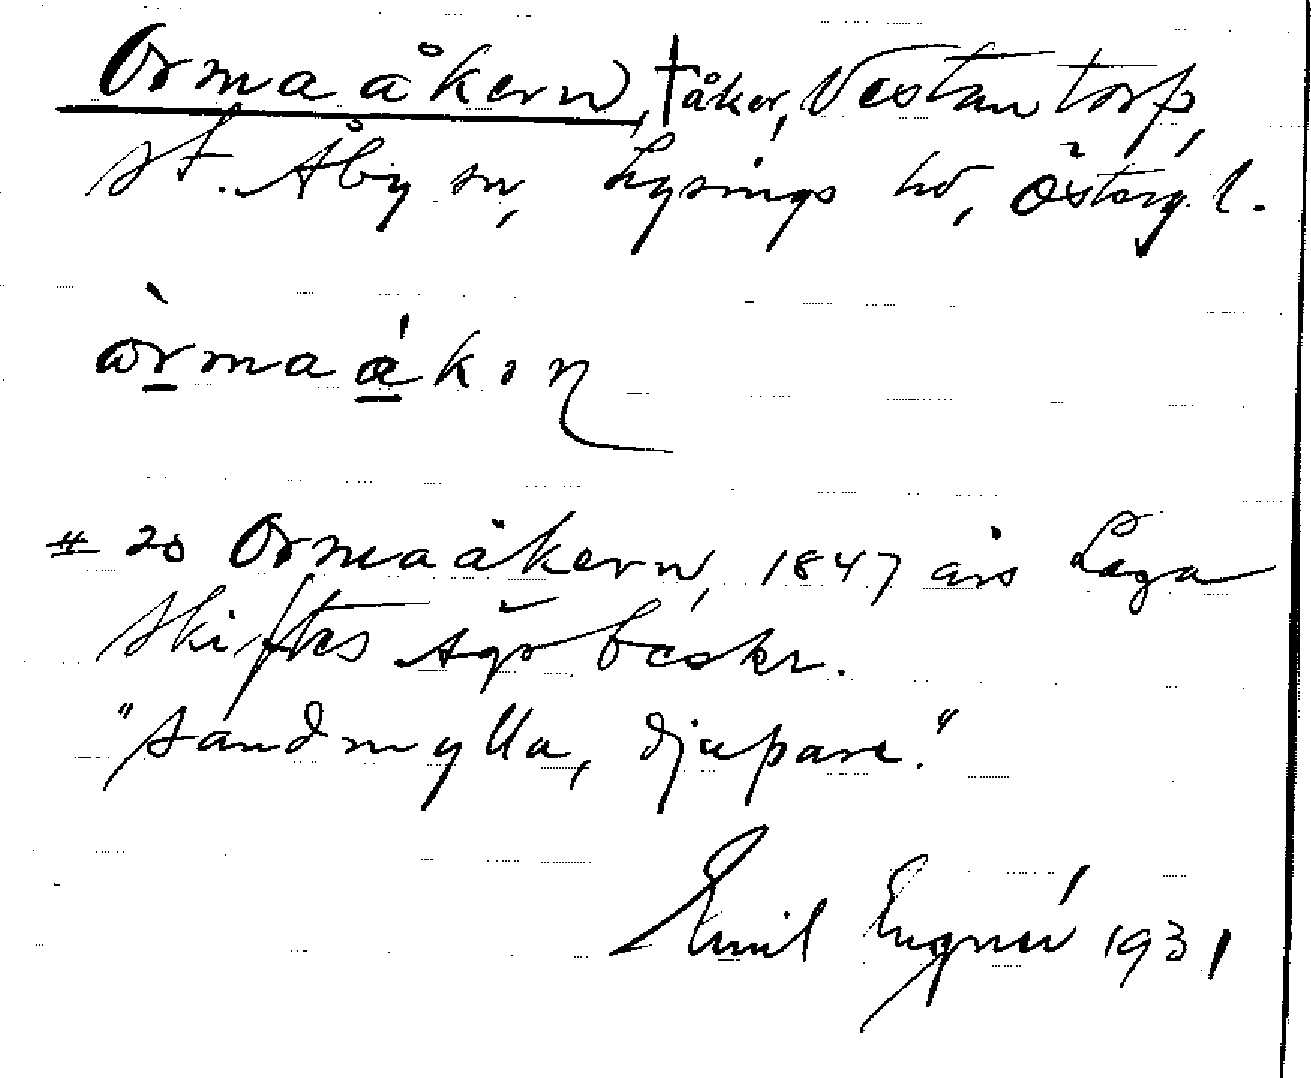 Ormaåkern, †åker, Västantorp,
St. Åby sn, Lysings hd, Östergl.
òrmaákən
# 20 Ormaåkern, 1847 års Laga
Skiftes Ägobeskr.
"Sandmylla, djupare."
Emil Engnér 1931